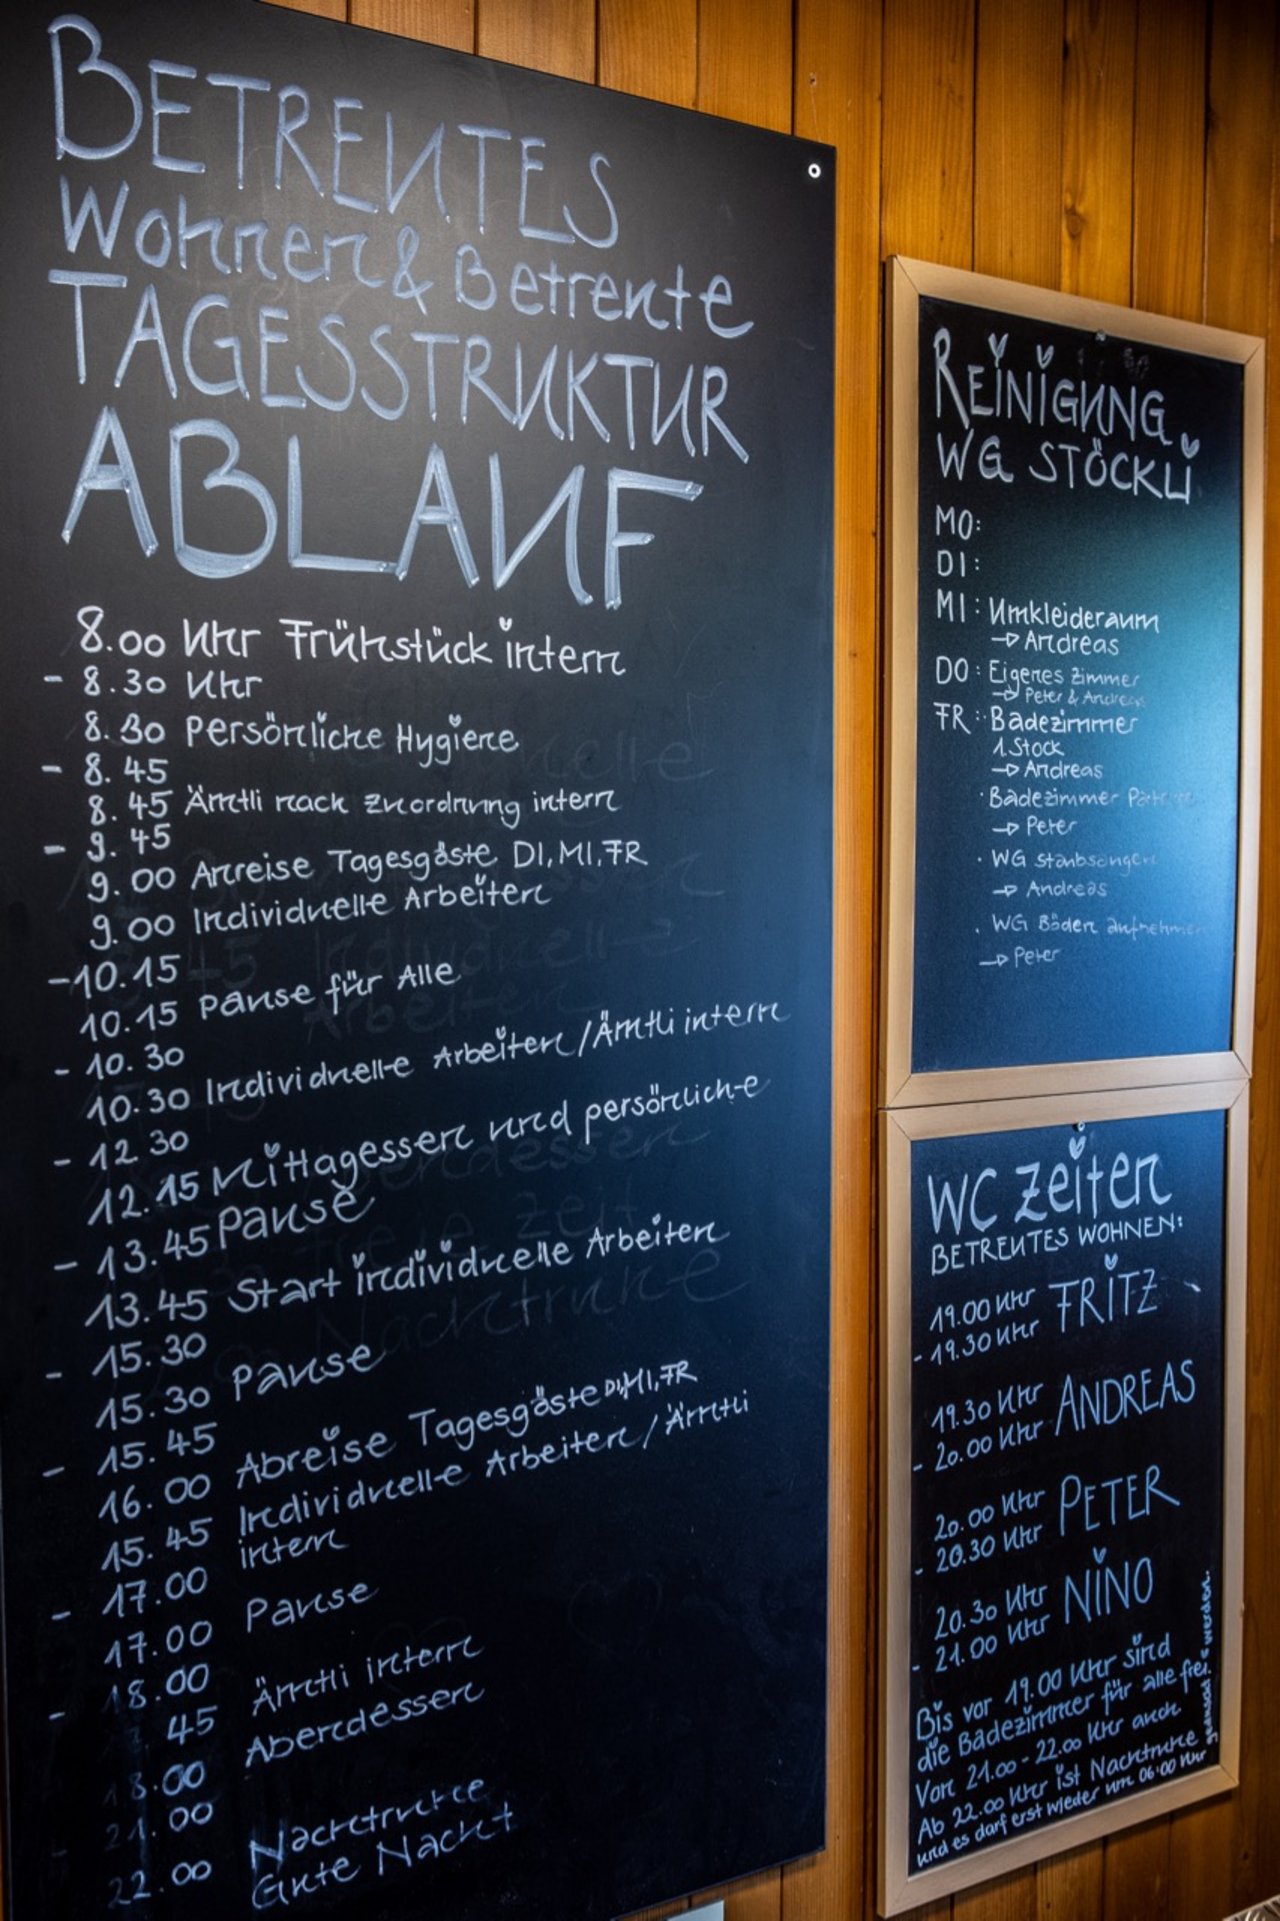 BETREUTES
Wohnen & Betreute
TAGESSTRUKTUR
ABLAUF
8.00 Uhr Frühstück intern
- 8.30 Uhr
8.30 Persönliche Hygiene
- 8.45
8.45 Ämtli nach Zuordnung intern
- 9.45
9.00 Anreise Tagesgäste DI, MI, FR
9.00 Individuelle Arbeiten
- 10.15
10.15 Pause für Alle
- 10.30
10.30 Individuelle Arbeiten / Ämtli intern
- 12.30
12.15 Mittagessen und persönliche
- 13.45 Pause
13.45 Start individuelle Arbeiten
- 15.30
15.30 Pause
- 15.45
16.00 Abreise Tagesgäste DI, MI, FR
15.45 Individuelle Arbeiten / Ämtli
- 17.00 intern
17.00 Pause
- 18.00
45 Ämtli intern
18.00 Abendessen
21.00
22.00 Nachtruhe
Gute Nacht
REINIGUNG
WG STÖCKLI
MO:
DI:
MI: Umkleideraum
→ Andreas
DO: Eigenes Zimmer
→ Peter & Andreas
FR: · Badezimmer
1. Stock
→ Andreas
· Badezimmer
→ Peter
· WG staubsaugen
→ Andreas
· WG Böden aufnehmen
→ Peter
WC Zeiten
BETREUTES WOHNEN:
19.00 Uhr FRITZ
- 19.30 Uhr
19.30 Uhr ANDREAS
- 20.00 Uhr
20.00 Uhr PETER
- 20.30 Uhr
20.30 Uhr NINO
- 21.00 Uhr
Bis vor 19.00 Uhr sind
die Badezimmer für alle frei.
Von 21.00 - 22.00 Uhr auch
Ab 22.00 Uhr ist Nachtruhe
und es darf erst wieder um 06:00 Uhr
geduscht werden.